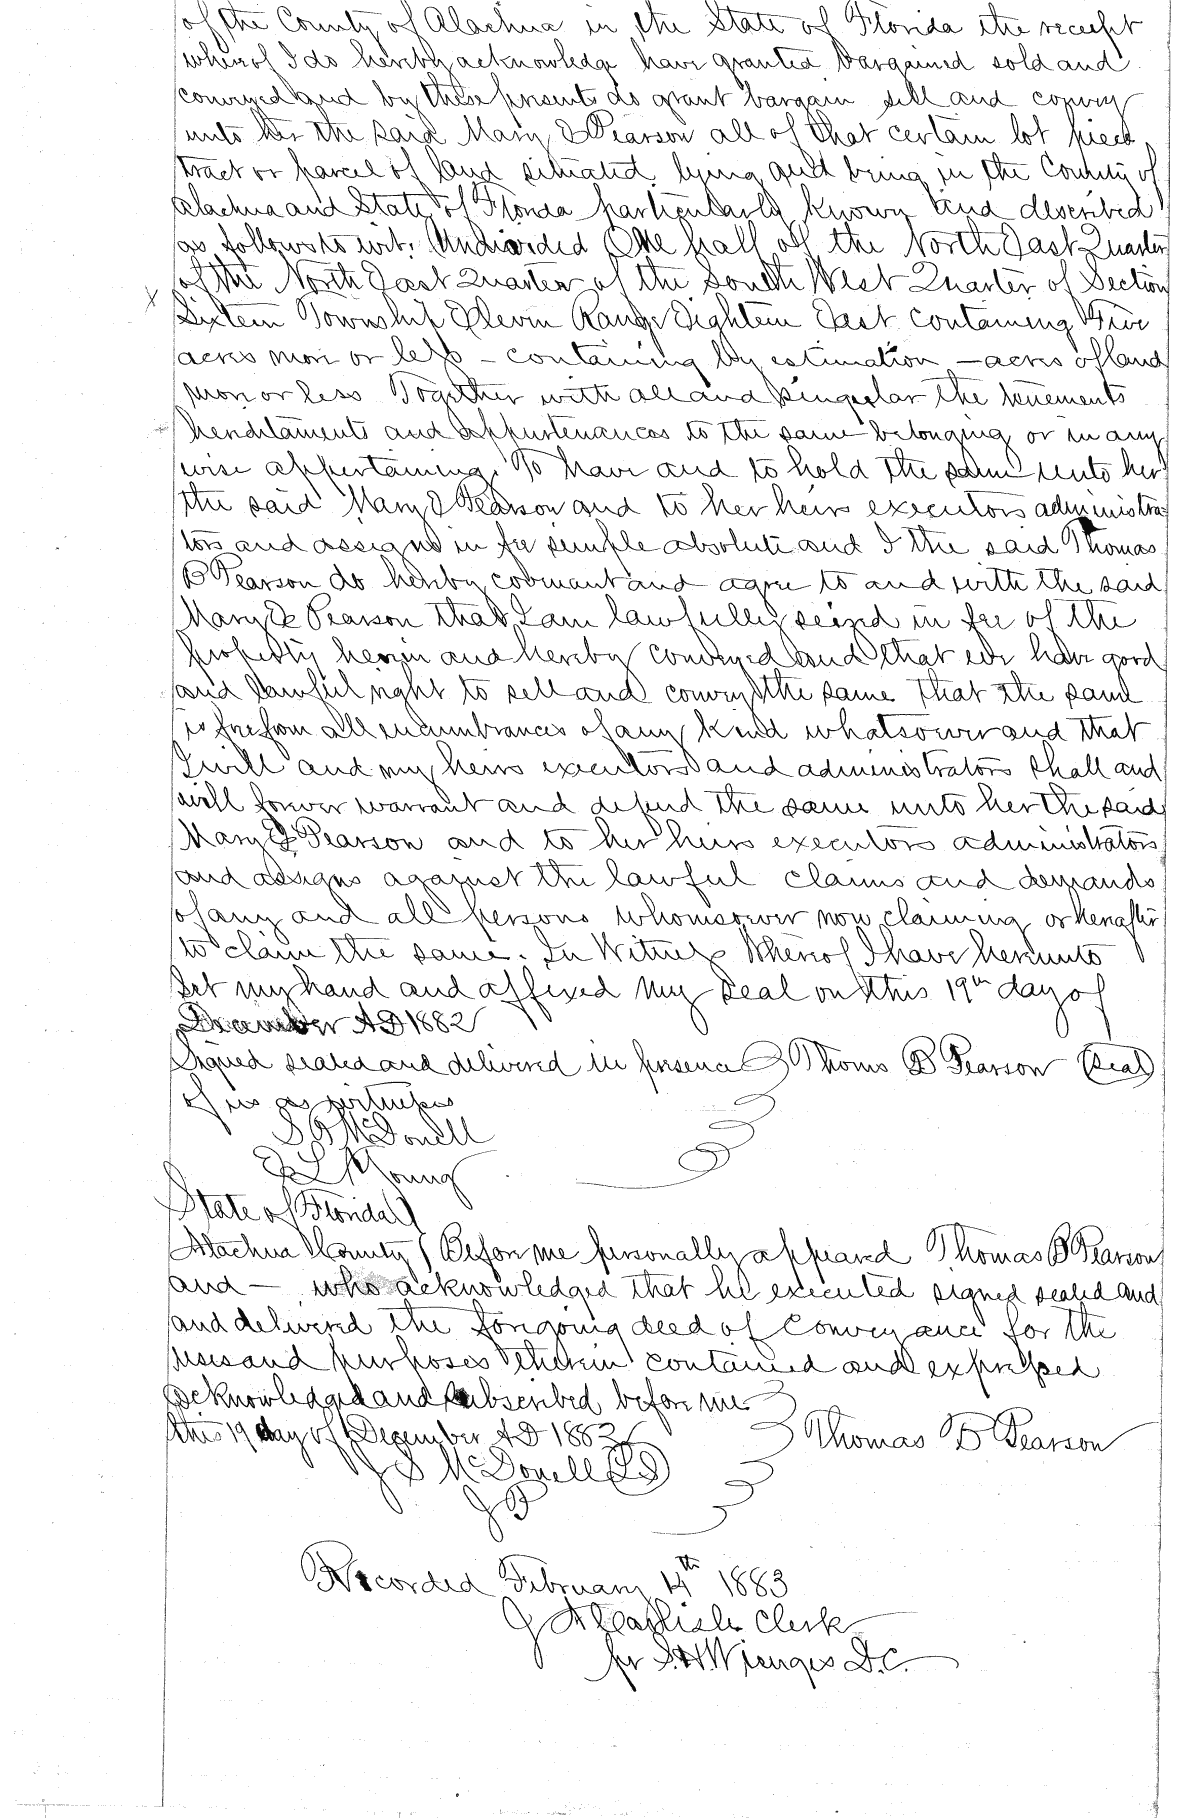 of the County of Alachua in the State of Florida the receipt
whereof I do hereby acknowledge have granted bargained sold and
conveyed and by these presents do grant bargain sell and convey
unto her the said Mary E Pearson all of that certain lot piece
tract or parcel of land situated lying and being in the County of
Alachua and State of Florida particularly known and described
as follows to wit: Undivided One half of the North East Quarter
of the North East Quarter of the South West Quarter of Section
Sixteen Township Eleven Range Eighteen East containing Five
acres more or less - containing by estimation - acres of land
more or less Together with all and singular the tenements
hereditaments and appurtenances to the same belonging or in any
wise appertaining. To have and to hold the same unto her
the said Mary E Pearson and to her heirs executors administra
tors and assigns in fee simple absolute and I the said Thomas
B Pearson do hereby covenant and agree to and with the said
Mary E Pearson that I am lawfully seized in fee of the
property herein and hereby conveyed and that we have good
and lawful right to sell and convey the same that the same
is free from all encumbrances of any kind whatsoever and that
I will and my heirs executors and administrators shall and
will forever warrant and defend the same unto her the said
Mary E Pearson and to her heirs executors administrators
and assigns against the lawful claims and demands
of any and all persons whomsoever now claiming or hereafter
to claim the same. In Witness Whereof I have hereunto
set my hand and affixed my seal on this 19th day of
December AD 1882
Signed sealed and delivered in presence Thomas B Pearson (Seal)
of us as witnesses
McDonell
Young
State of Florida
Alachua County Before me personally appeared Thomas B Pearson
and - who acknowledged that he executed signed sealed and
and delivered the foregoing deed of Conveyance for the
uses and purposes therein contained and expressed
acknowledged and subscribed before me
this 19 day of December AD 1882 Thomas B Pearson
J S McDonell (LS)
J P
Recorded February 14th 1883
J A Carlisle Clerk
per S. H. Wienges D.C.